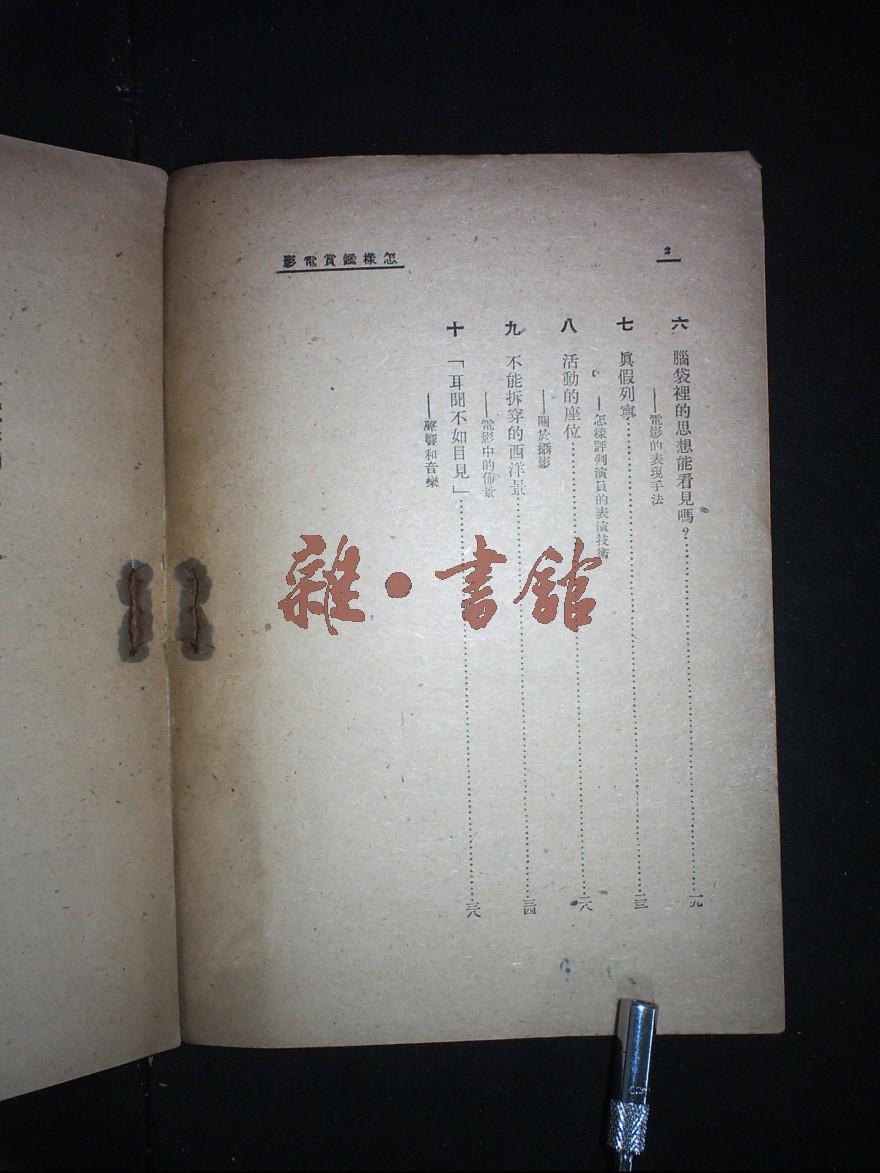 2
怎樣鑑賞電影
六 腦袋裡的思想能看見嗎？……一九
——電影的表現手法
七 眞假列寧……二三
——怎樣評判演員的表演技術
八 活動的座位……二八
——關於攝影
九 不能拆穿的西洋景……三四
——電影中的佈景
十 「耳聞不如目見」……三八
——聲響和音樂
雜·書館